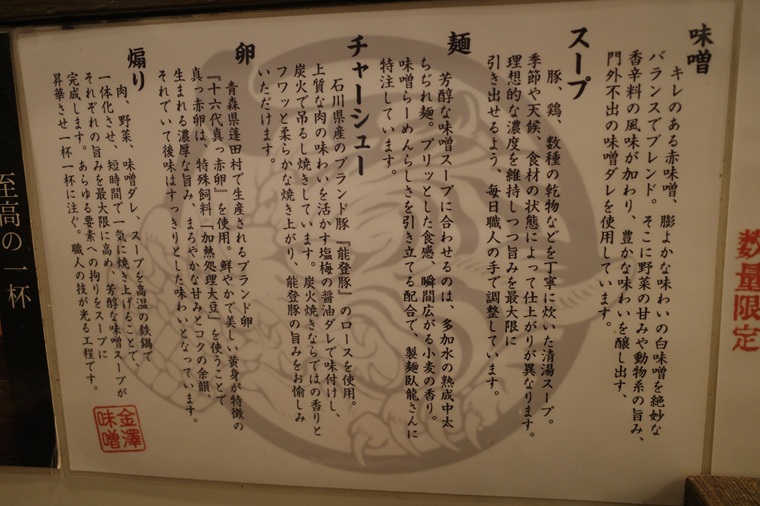 味噌
キレのある赤味噌、膨よかな味わいの白味噌を絶妙な
バランスでブレンド。そこに野菜の甘みや動物系の旨み、
香辛料の風味が加わり、豊かな味わいを醸し出す、
門外不出の味噌ダレを使用しています。
スープ
豚、鶏、数種の乾物などを丁寧に炊いた清湯スープ。
季節や天候、食材の状態によって仕上がりが異なります。
理想的な濃度を維持しつつ旨みを最大限に
引き出せるよう、毎日職人の手で調整しています。
麺
芳醇な味噌スープに合わせるのは、多加水の熟成中太
ちぢれ麺。プリッとした食感、瞬間広がる小麦の香り。
味噌らーめんらしさを引き立てる配合で、製麺臥龍さんに
特注しています。
チャーシュー
石川県産のブランド豚『能登豚』のロースを使用。
上質な肉の味わいを活かす塩梅の醤油ダレで味付けし、
炭火で吊るし焼きしています。炭火焼きならではの香りと
フワッと柔らかな焼き上がり、能登豚の旨みをお愉しみ
いただけます。
卵
青森県蓬田村で生産されるブランド卵
『十六代真っ赤卵』を使用。鮮やかで美しい黄身が特徴の
真っ赤卵は、特殊飼料「加熱処理大豆」を使うことで
生まれる濃厚な旨み、まろやかな甘みとコクの余韻、
それでいて後味はすっきりとした味わいとなっています。
煽り
肉、野菜、味噌ダレ、スープを高温の鉄鍋で
一体化させ、短時間で一気に焼き上げることで、
それぞれの旨みを最大限に高め、芳醇な味噌スープが
完成します。あらゆる要素への拘りをスープに
昇華させ一杯一杯に注ぐ。職人の技が光る工程です。
金澤
味噌
数量限定
至高の一杯